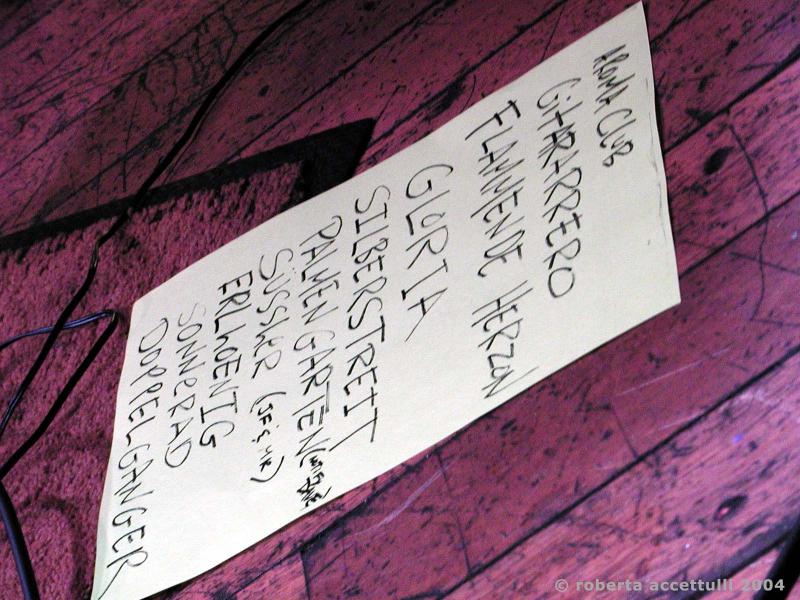 AROMA CLUB
GITARARRERO
FLAMMENDE HERZEN
GLORIA
SILBERSTREIT
PALMENGARTEN
SÜSSHER
ERLKOENIG
SONNERAD
DOPPELGANGER
© roberta accettulli 2004